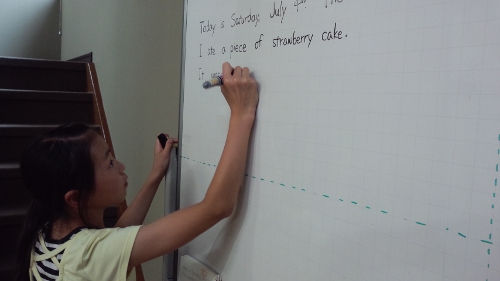 Today is Saturday, July 4th. The
I ate a piece of strawberry cake.
It was